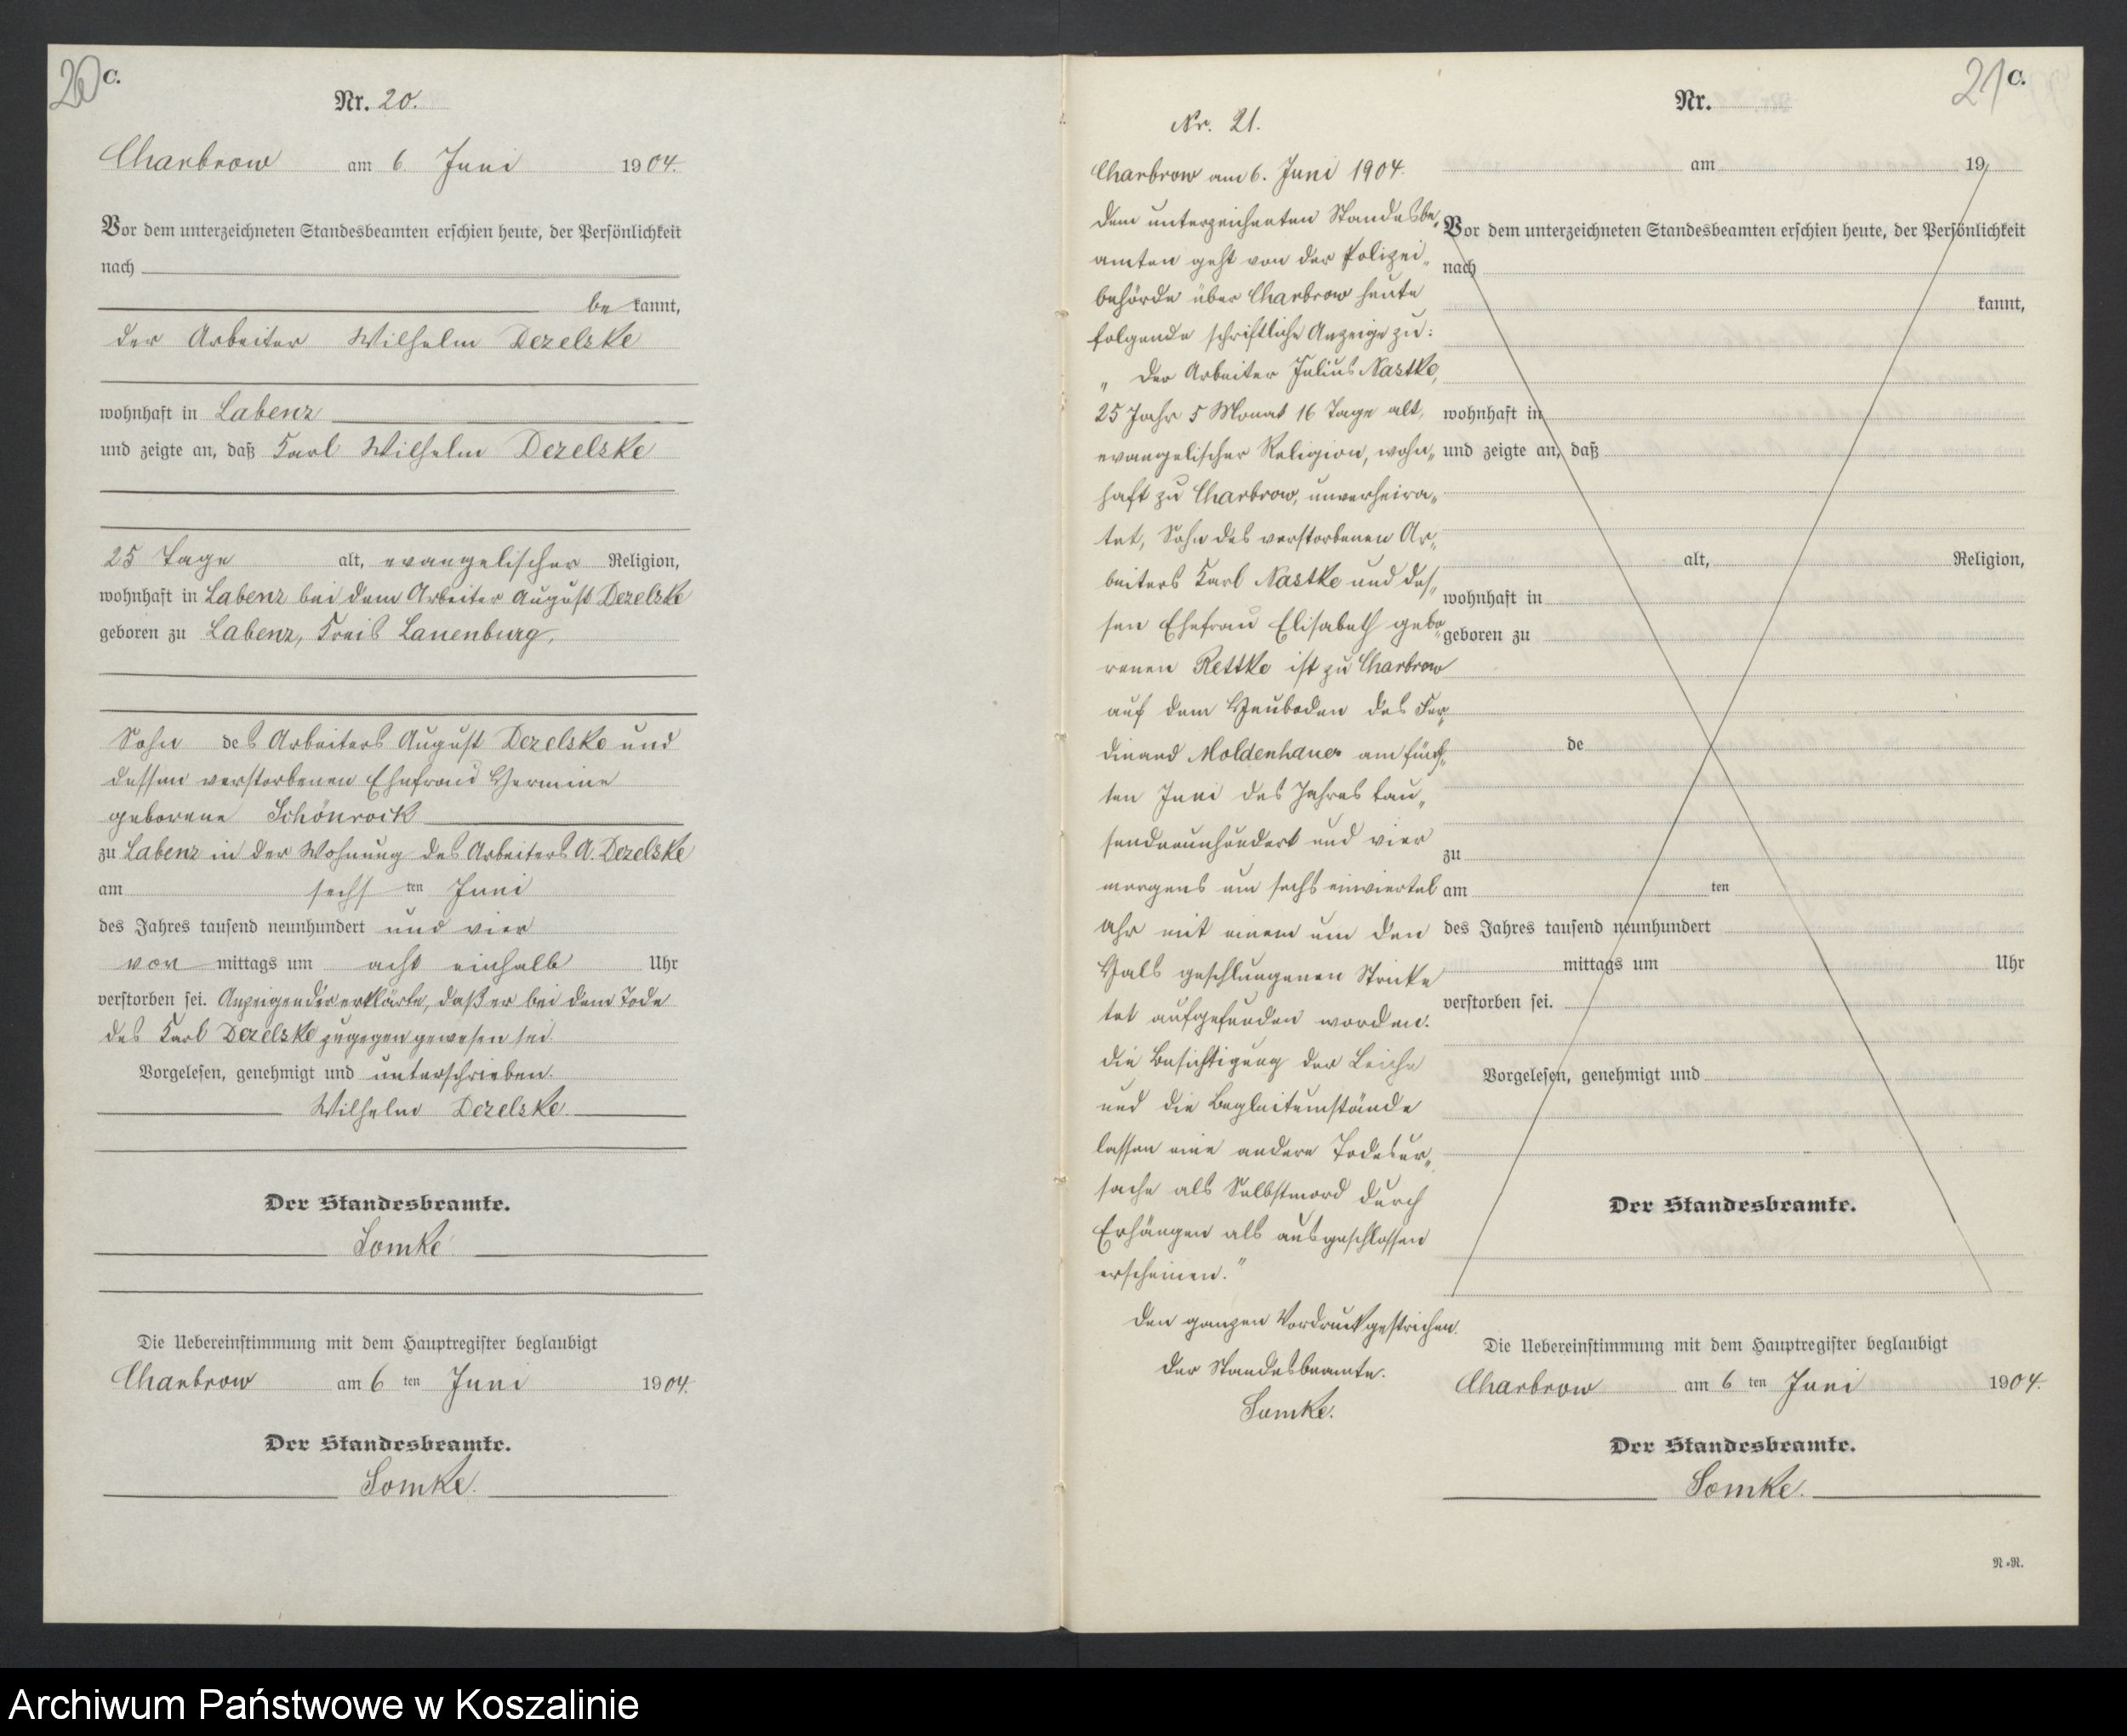 20 C.
Nr. 20.
Charbrow am 6. Juni 1904.
Vor dem unterzeichneten Standesbeamten erschien heute, der Persönlichkeit
nach
be kannt,
der Arbeiter Wilhelm Dezelske
wohnhaft in Labenz
und zeigte an, daß Karl Wilhelm Dezelske
25 Tage alt, evangelischer Religion,
wohnhaft in Labenz bei dem Arbeiter August Dezelske
geboren zu Labenz, Kreis Lauenburg,
Sohn des Arbeiters August Dezelske und
dessen verstorbenen Ehefrau Hermine
geborene Schönrock
zu Labenz in der Wohnung des Arbeiters A. Dezelske
am sechs ten Juni
des Jahres tausend neunhundert und vier
vor mittags um acht einhalb Uhr
verstorben sei. Anzeigender erklärte, daß er bei dem Tode
des Karl Dezelske zugegen gewesen sei.
Vorgelesen, genehmigt und unterschrieben.
Wilhelm Dezelske.
Der Standesbeamte.
Somke
Die Uebereinstimmung mit dem Hauptregister beglaubigt
Charbrow am 6 ten Juni 1904.
Der Standesbeamte.
Somke.
Nr. 21.
Charbrow am 6. Juni 1904.
Dem unterzeichneten Standesbe„
amten geht von der Polizei„
behörde über Charbrow heute
folgende schriftliche Anzeige zu:
„Der Arbeiter Julius Nastke,
25 Jahr 5 Monat 16 Tage alt,
evangelischer Religion, wohn„
haft zu Charbrow, unverheira„
tet, Sohn des verstorbenen Ar„
beiters Karl Nastke und des„
sen Ehefrau Elisabeth gebo„
renen Rettke ist zu Charbrow
auf dem Heuboden des Fer„
dinand Moldenhauer am fünf„
ten Juni des Jahres tau„
sendneunhundert und vier
morgens um sechs einviertel
Uhr mit einem um den
Hals geschlungenen Stricke
tot aufgefunden worden.
Die Besichtigung der Leiche
und die Begleitumstände
lassen eine andere Todesur„
sache als Selbstmord durch
Erhängen als ausgeschlossen
erscheinen."
Den ganzen Vordruck gestrichen.
Der Standesbeamte.
Somke.
21 C.
Nr.
am 19
Vor dem unterzeichneten Standesbeamten erschien heute, der Persönlichkeit
nach
kannt,
wohnhaft in
und zeigte an, daß
alt, Religion,
wohnhaft in
geboren zu
de
zu
am ten
des Jahres tausend neunhundert
mittags um Uhr
verstorben sei.
Vorgelesen, genehmigt und
Der Standesbeamte.
Die Uebereinstimmung mit dem Hauptregister beglaubigt
Charbrow am 6 ten Juni 1904.
Der Standesbeamte.
Somke.
N.=N.
Archiwum Państwowe w Koszalinie